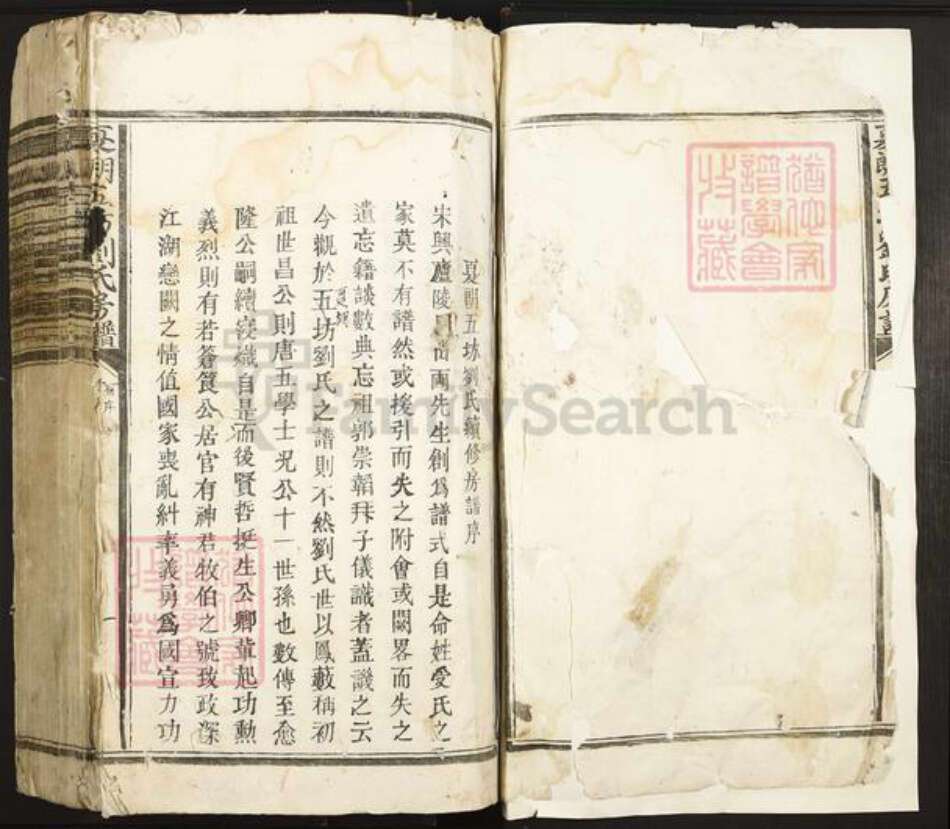 夏朗五坊劉氏續修房譜序
宋興廬陵眉山兩先生創為譜式自是命姓受氏之
家莫不有譜然或援引而失之附會或闕畧而失之
遺忘籍談數典忘祖郭崇韜拜子儀識者蓋譏之云
今觀於夏朗五坊劉氏之譜則不然劉氏世以鳳藪稱初
祖世昌公則唐五學士況公十一世孫也數傳至愈
隆公嗣續寖熾自是而後賢哲挺生公卿輩起功勲
義烈則有若蒼筤公居官有神君牧伯之號致政深
江湖戀闕之情值國家喪亂糾率義勇為國宣力功
夏朗五坊劉氏房譜
序
一
夏朗五坊劉氏房譜
猶他家
譜學會
收藏
猶他家
譜學會
收藏
FamilySearch